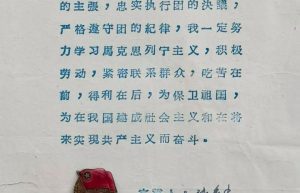 的主張，忠实执行团的决議，
严格遵守团的紀律，我一定努
力学习馬克思列宁主义，积极
劳动，紧密联系群众，吃苦在
前，得利在后，为保卫祖国，
为在我国建成社会主义和在将
来实现共产主义而奋斗。